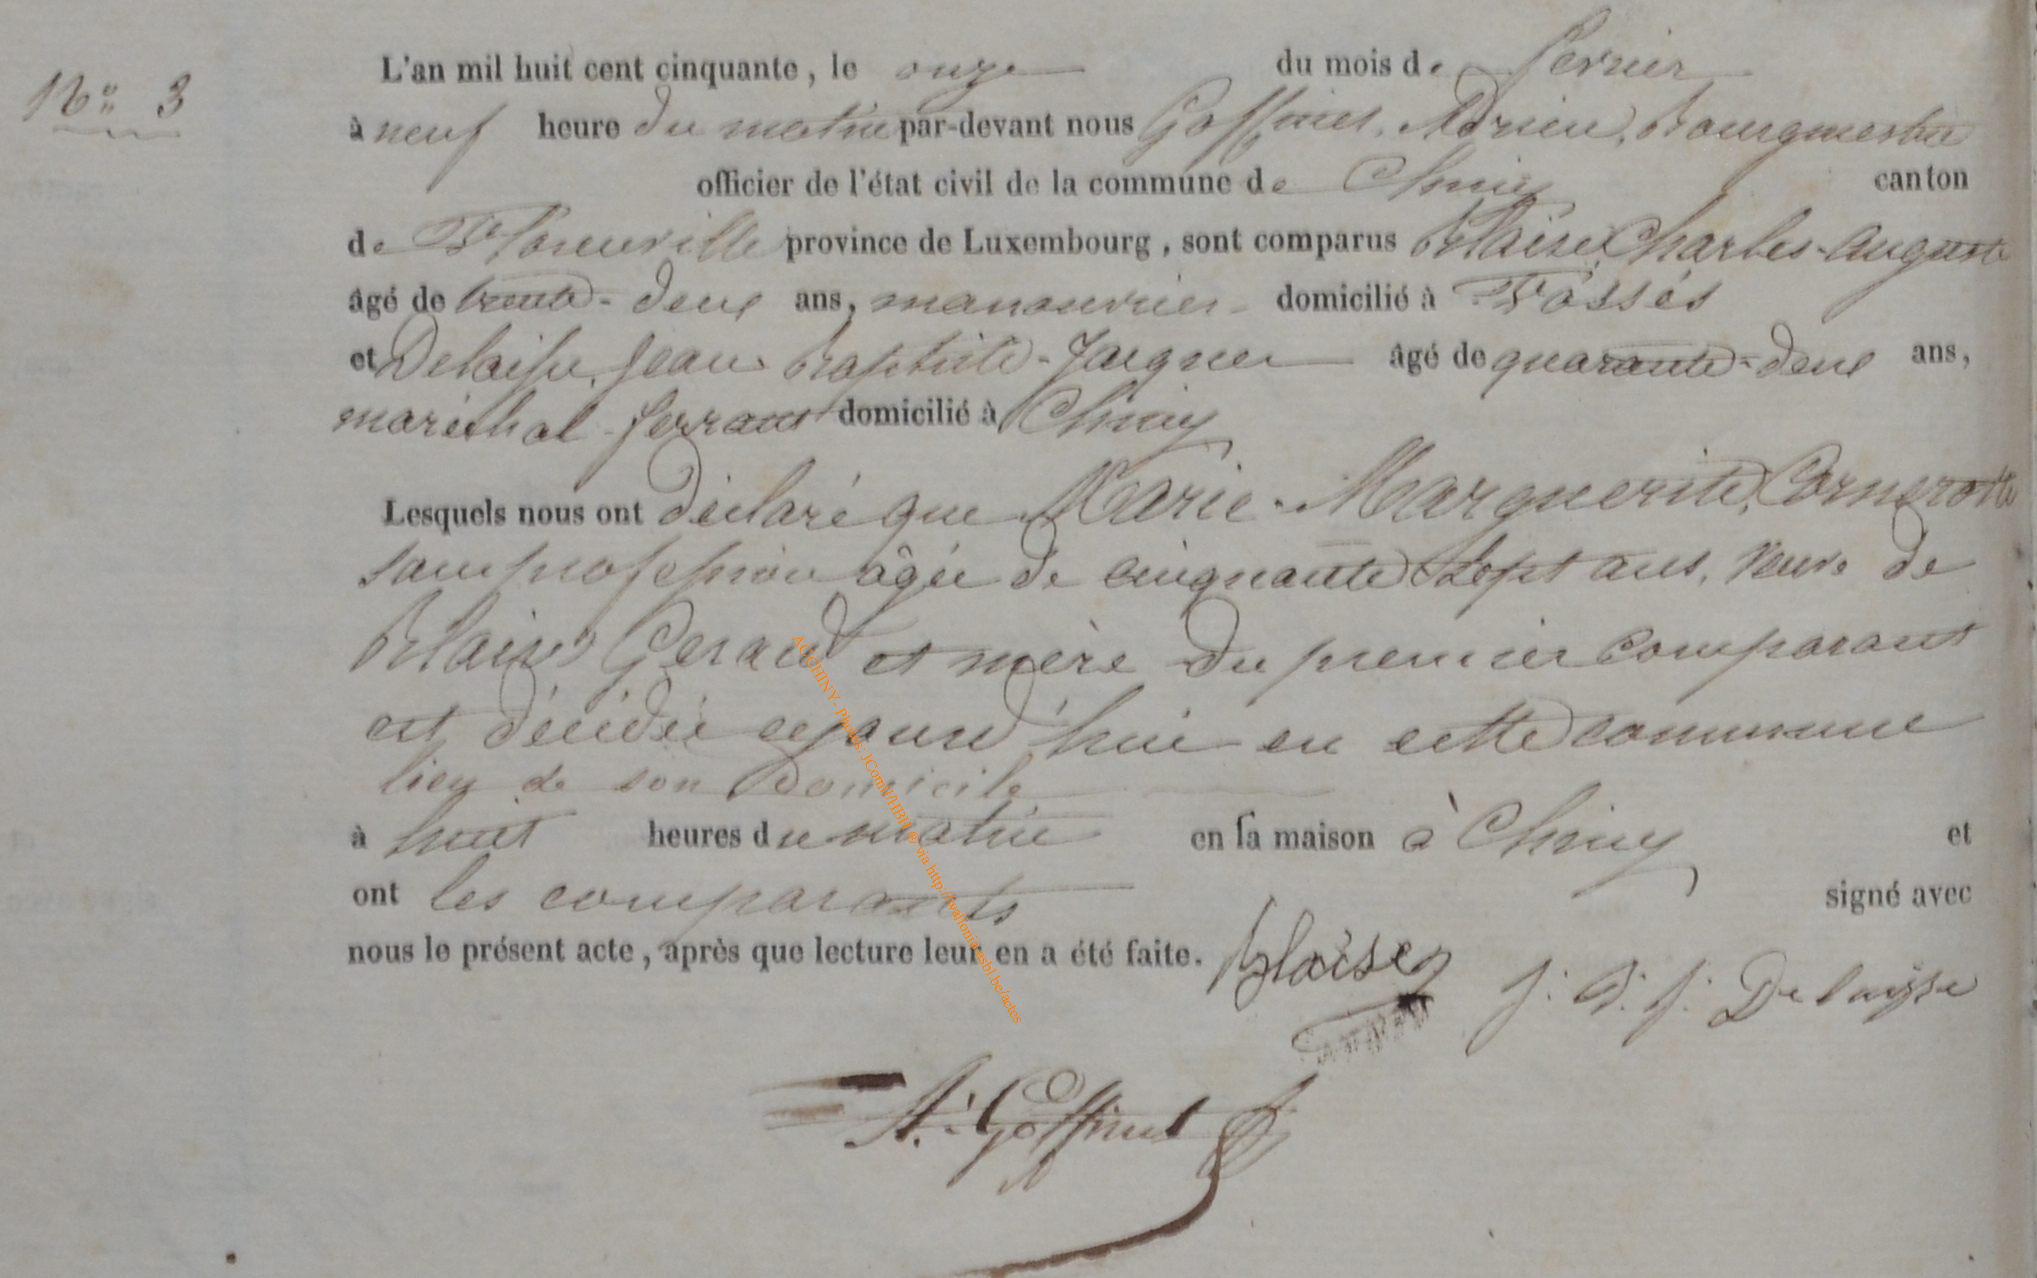 N° 3
L'an mil huit cent cinquante, le onze du mois de fevrier
à neuf heure du matin par-devant nous Goffinet, Adrien, bourgmestre
officier de l'état civil de la commune de Chiny canton
de Florenville province de Luxembourg, sont comparus Blaise, Charles-Auguste
âgé de trente-deux ans, manouvrier domicilié à Fossés
et Delaisse, Jean Baptiste-Jacques âgé de quarante-deux ans,
maréchal-ferrant domicilié à Chiny
Lesquels nous ont déclaré que Marie-Marguerite, Cornerotte
sans profession âgée de cinquante sept ans, veuve de
Blaise Gerard et mère du premier comparant
est décédée cejourd'hui en cette commune
lieu de son domicile
à huit heures du matin en sa maison à Chiny et
ont les comparants signé avec
nous le présent acte, après que lecture leur en a été faite. Blaise J. B. J. Delaisse
A. Goffinet